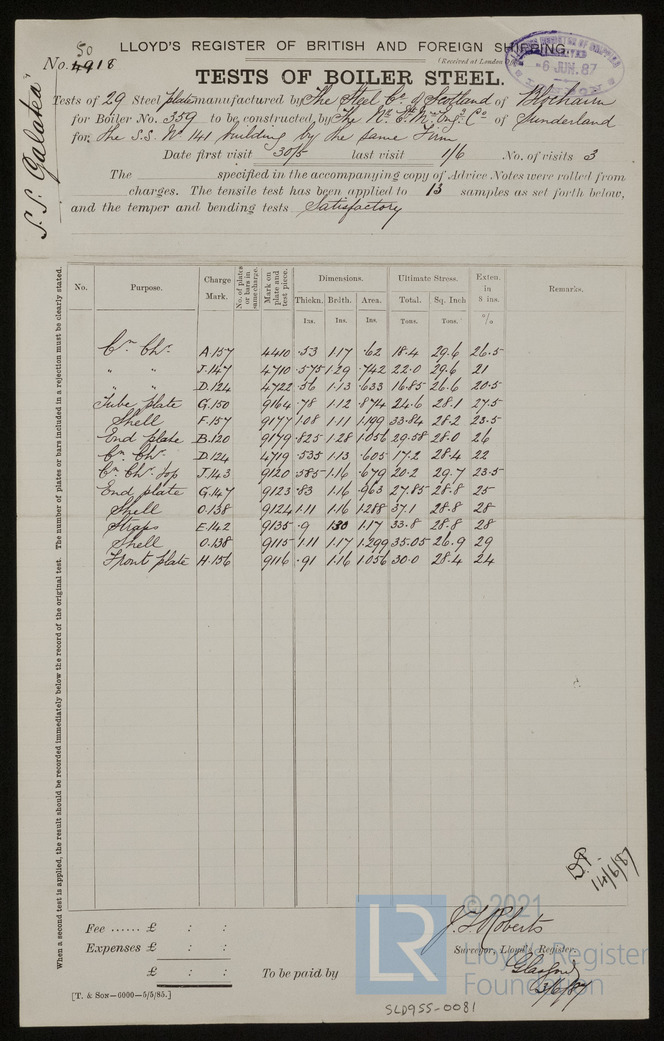 50
LLOYD'S REGISTER OF BRITISH AND FOREIGN SHIPPING.
No. 4918
(Received at London Office
6 JUN. 87
TESTS OF BOILER STEEL.
S.S. "Galatea"
Tests of 29 Steel plates manufactured by The Steel Co. of Scotland of Blochairn
for Boiler No. 359 to be constructed by The No. Et. Mne. Engg. Co of Sunderland
for the S.S. No 141 building by the same Firm
Date first visit 30/5 last visit 1/6 No. of visits 3
The specified in the accompanying copy of Advice Notes were rolled from
charges. The tensile test has been applied to 13 samples as set forth below,
and the temper and bending tests Satisfactory
When a second test is applied, the result should be recorded immediately below the record of the original test. The number of plates or bars included in a rejection must be clearly stated.
No. Purpose. Charge Mark. No. of plates or bars in same charge. Mark on plate and test piece. Dimensions. Ultimate Stress. Exten. in 8 ins. Remarks.
Thickn. Brdth. Area. Total. Sq. Inch
Ins. Ins. Ins. Tons. Tons. %
Cn. Chr. A.157 4410 .53 1.17 .62 18.4 29.6 26.5
" " J.147 4710 .575 1.29 .742 22.0 29.6 21
" " D.124 4722 .56 1.13 .633 16.85 26.6 20.5
Tube plate G.150 9164 .78 1.12 .874 24.6 28.1 27.5
Shell F.157 9177 1.08 1.11 1.199 33.84 28.2 23.5
End plate B.120 9179 .825 1.28 1.056 29.58 28.0 26
Cn. Chr. D.124 4719 .535 1.13 .605 17.2 28.4 22
Cn. Chr. top J.143 9120 .585 1.16 .679 20.2 29.7 23.5
End plate G.147 9123 .83 1.16 .963 27.85 28.8 25
Shell O.138 9124 1.11 1.16 1.288 37.1 28.8 28
Straps E.142 9135 .9 1.30 1.17 33.8 28.8 28
Shell O.138 9115 1.11 1.17 1.299 35.05 26.9 29
Front plate H.156 9116 .91 1.16 1.056 30.0 28.4 24
14/6/87
Fee ...... £ : :
Expenses £ : :
£ : :
To be paid by
J. T. Roberts
Surveyor, Lloyd's Register.
Glasgow
3/6/87
[T. & Son—6000—5/5/85.]
SLD955-0081
© 2021
LR
Lloyd's Register
Foundation